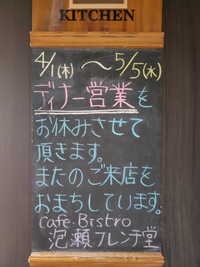 KITCHEN
4/1(木)～5/5(水)
ディナー営業を
お休みさせて
頂きます。
またのご来店を
おまちしています。
Cafe.Bistro
瀬フレンチ堂